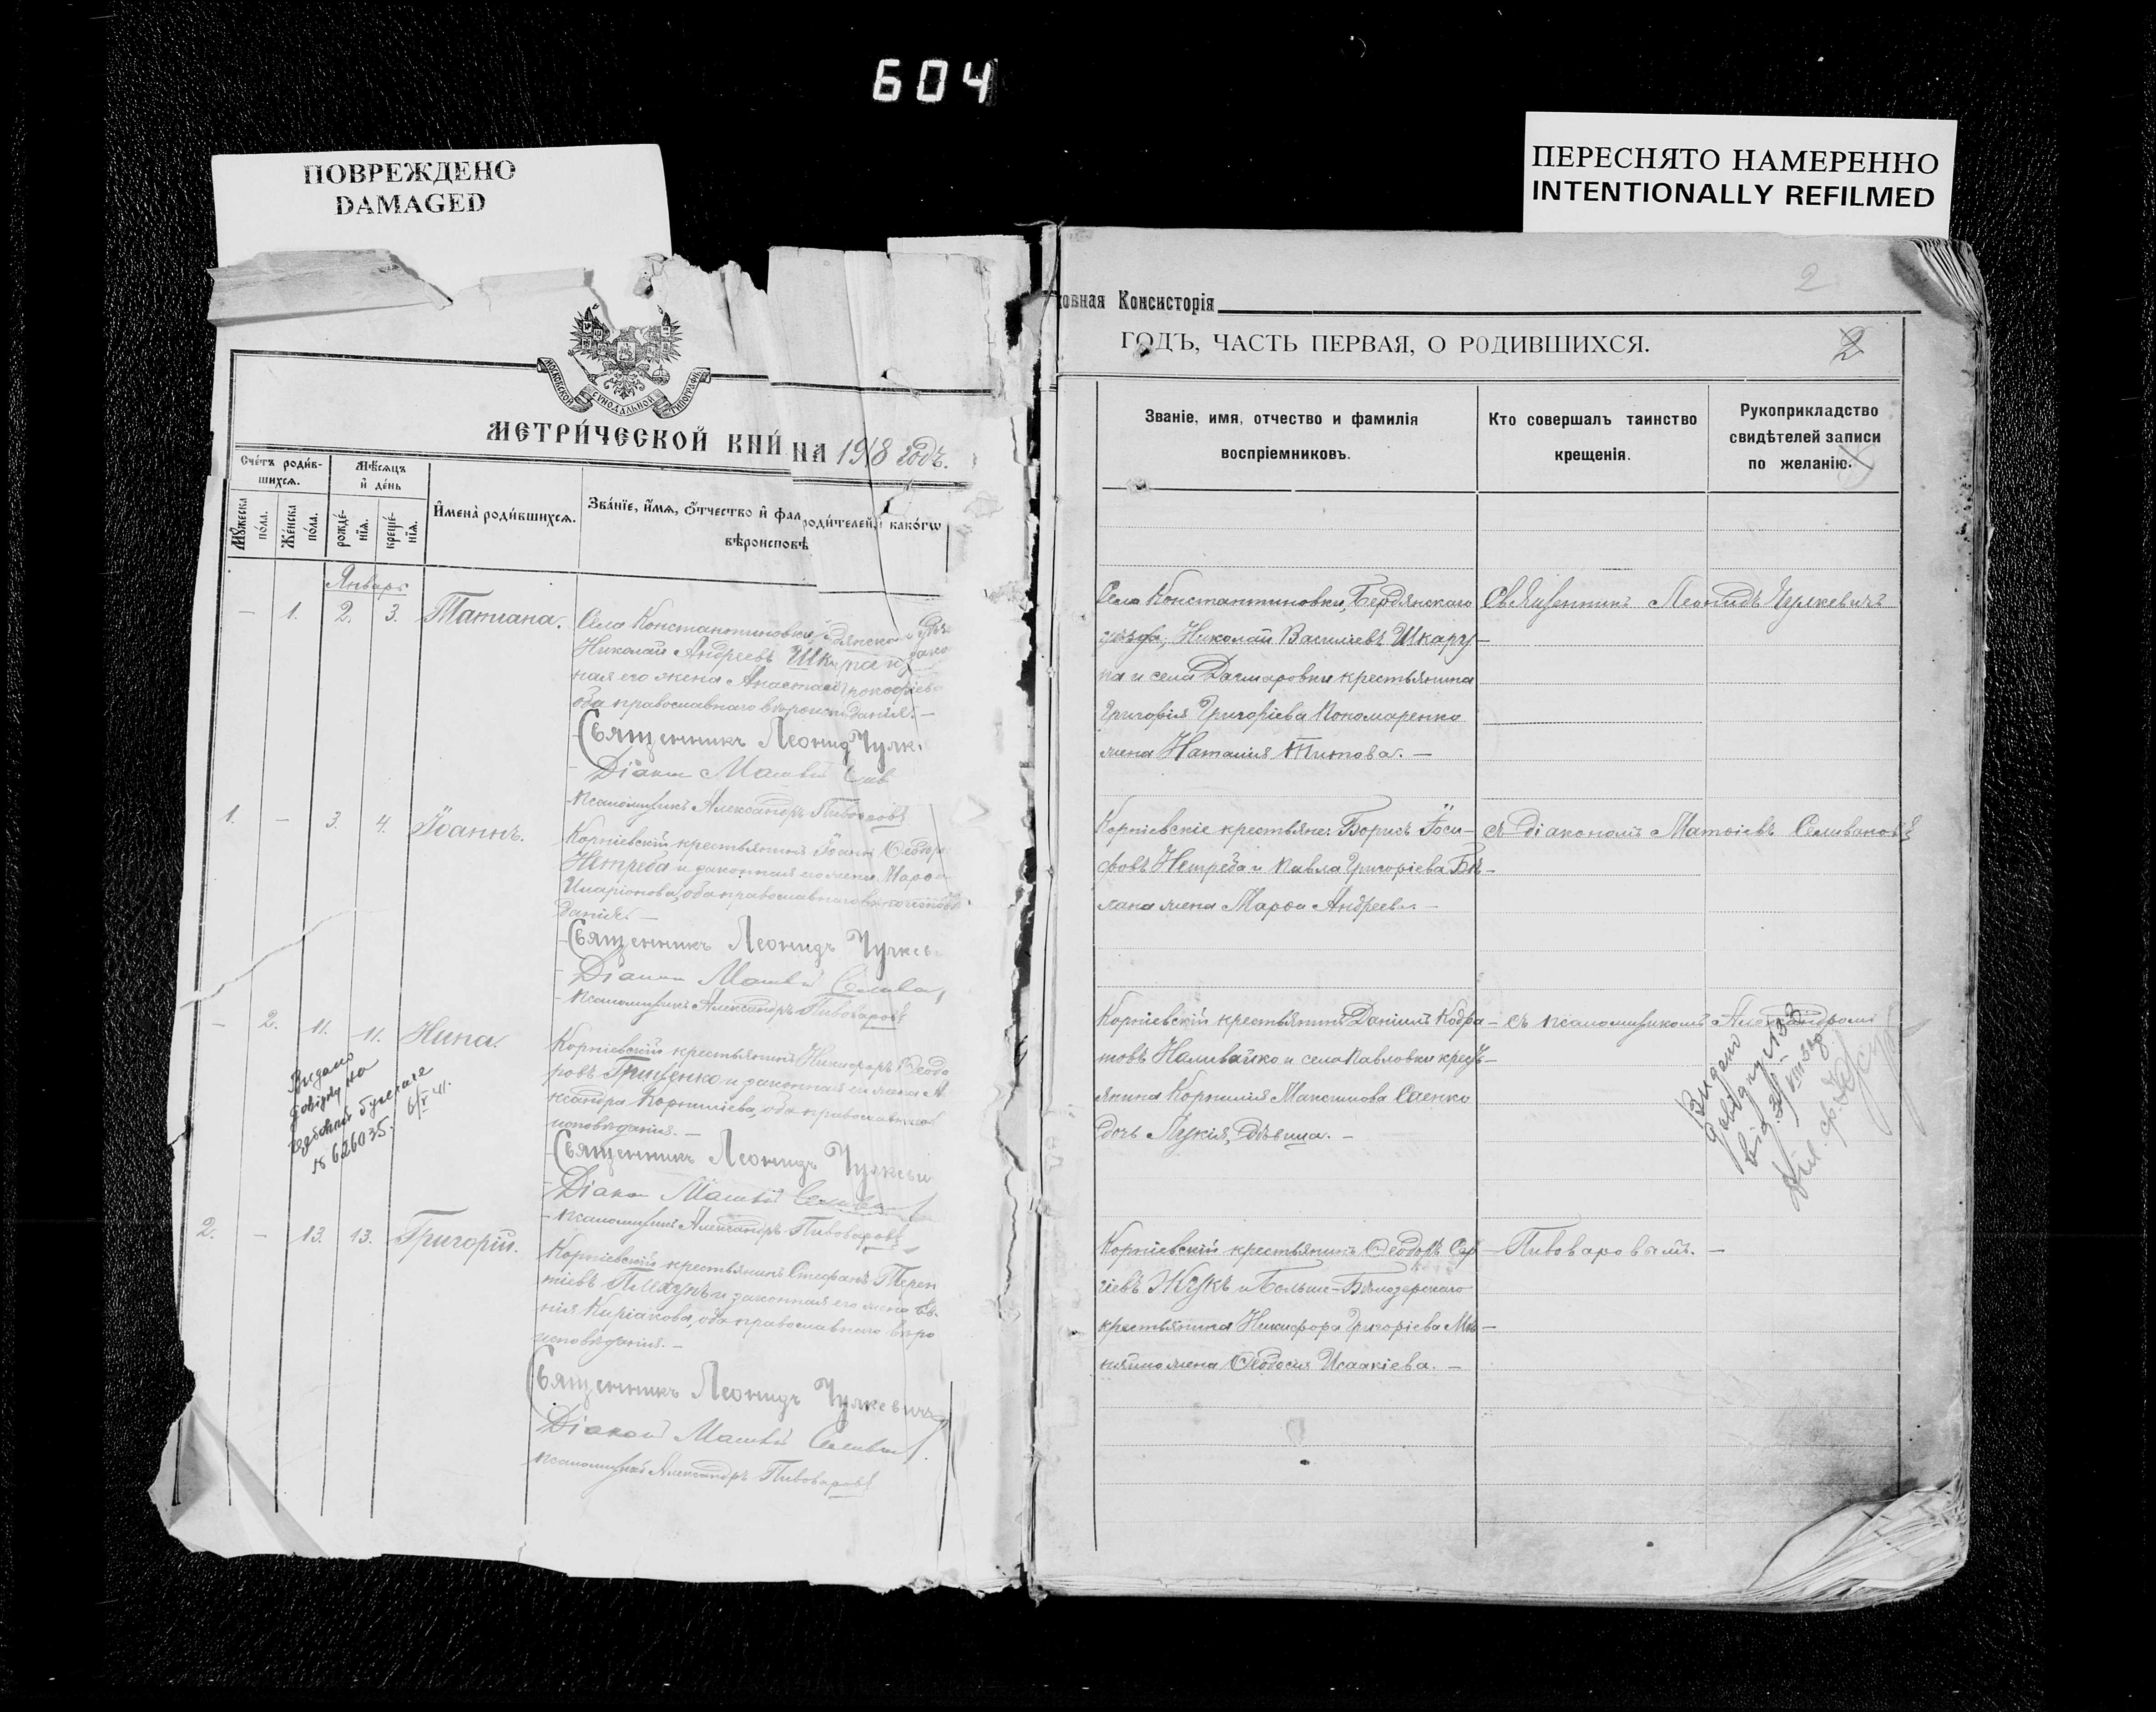 604
ПОВРЕЖДЕНО
DAMAGED
ПЕРЕСНЯТО НАМЕРЕННО
INTENTIONALLY REFILMED
МОСКОВСКОЙ СѴНОДАЛЬНОЙ ТИПОГРАФІИ
МЕТРИ́ЧЕСКОЙ КНИ́ НА 1918 годъ.
Сче́тъ роди́в-
шихся.
Мѣ́сяцъ
и҆ де́нь
Мꙋ́жеска
по́ла.
Же́нска
по́ла.
рожде́-
нїѧ.
креще́-
нїѧ.
И҆мена̀ роди́вшихсѧ.
Зва́нїе, и҆́мѧ, ѻ҆́тчество и҆ фа роди́телей, и҆ како́гѡ
вѣроисповѣ
Январь
— 1. 2. 3. Татиана.
Села Константиновки,
Николай Андреевъ
ная его жена Анастасія Прокофіева
оба православнаго вѣроисповѣданія. —
Священникъ Леонидъ Чулк
Діаконъ Матвѣй Сели
Псаломщикъ Александръ Пивоваровъ
1. — 3. 4. Іоаннъ.
Корніевскій крестьянинъ Іоаннъ Ѳеодоро
Нетреба и законная его жена Марѳа
Иларіонова, оба православнаго вѣроисповѣ
данія. —
Священникъ Леонидъ Чулкев
Діаконъ Матвѣй Селива
Псаломщикъ Александръ Пивоваровъ
— 2. 11. 11. Нина.
Корніевскій крестьянинъ Никифоръ Ѳеодо
ровъ Грищенко и законная его жена Але
ксандра Корнилієва, оба православнаго
исповѣданія. —
Священникъ Леонидъ Чулкеви
Діаконъ Матвѣй Селива
Псаломщикъ Александръ Пивоваровъ
Видано
довідку на
№ 626035.
2. — 13. 13. Григорій.
Корніевскій крестьянинъ Стефанъ Терен
тіевъ и законная его жена Ев
нія Киріакова, оба православнаго вѣро
исповѣданія. —
Священникъ Леонидъ Чулкевичъ
Діаконъ Матвѣй Селиван
Псаломщикъ Александръ Пивоваровъ
2
овная Консисторія
ГОДЪ, ЧАСТЬ ПЕРВАЯ, О РОДИВШИХСЯ.
2
Званіе, имя, отчество и фамилія
воспріемниковъ.
Кто совершалъ таинство
крещенія.
Рукоприкладство
свидѣтелей записи
по желанію.
Села Константиновки, Бердянскаго
уѣзда, Николай Васильевъ Шкару-
па и села Дагмаровки крестьянина
Григорія Григоріева Пономаренко
жена Наталія Титова. —
Священникъ Леонидъ Чулкевичъ
Корніевскіе крестьяне: Борисъ Іоси-
фовъ Нетреба и Павла Григоріева Бѣ-
лана жена Марѳа Андреева —
съ діакономъ Матѳіевъ Селивановъ
Корніевскій крестьянинъ Даніилъ Кодра-
товъ Наливайко и села Павловки кресть-
янина Корнилія Максимова Саенко
дочь Лукія, дѣвица. —
съ псаломщикомъ Александромъ
Видано
довідку № 133
Корніевскій крестьянинъ Ѳеодоръ Сер-
гіевъ Жукъ и Больше-Бѣлозерскаго
крестьянина Никифора Григоріева
жена Ѳеодосія Исаакіева. —
— Пивоваровымъ. —